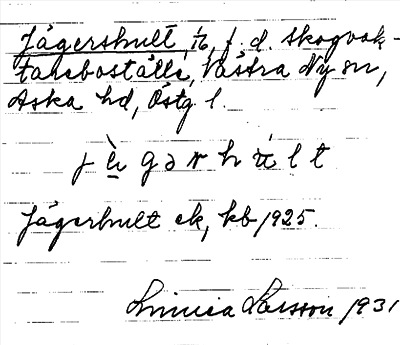 Jägershult, 1/16, f. d. skogvak-
tareboställe, Västra Ny sn,
Aska hd, Östg l.
Jägerhult ek, kb 1925.
Linnea Larsson 1931